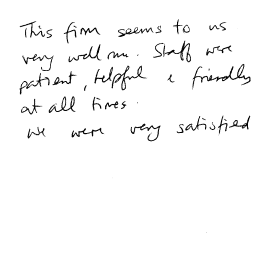 This firm seems to us
very well run. Staff were
patient, helpful & friendly
at all times.
We were very satisfied